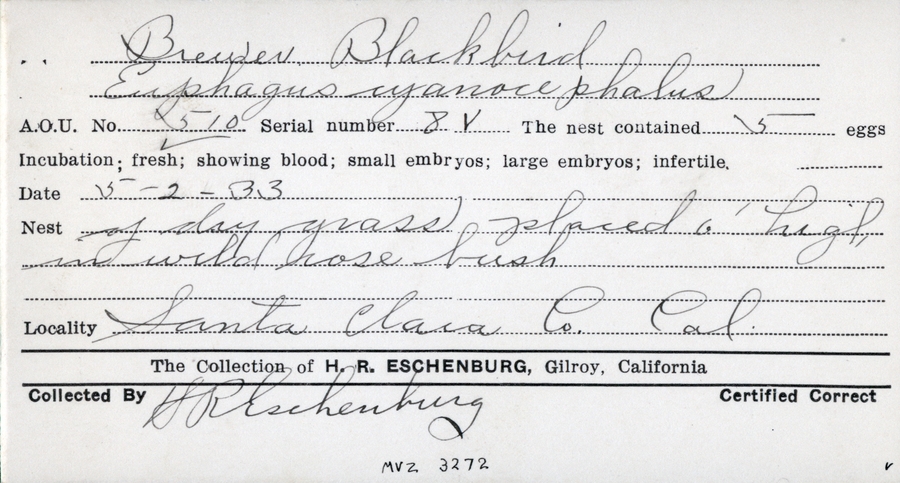 Brewer Blackbird
Euphagus cyanocephalus
A.O.U. No. 510 Serial number 8 V The nest contained 5 eggs
Incubation; fresh; showing blood; small embryos; large embryos; infertile.
Date 5-2-33
Nest of dry grass placed 6' high
in wild rose bush
Locality Santa Clara Co. Cal.
The Collection of H. R. ESCHENBURG, Gilroy, California
Collected By H R Eschenburg Certified Correct
MVZ 3272